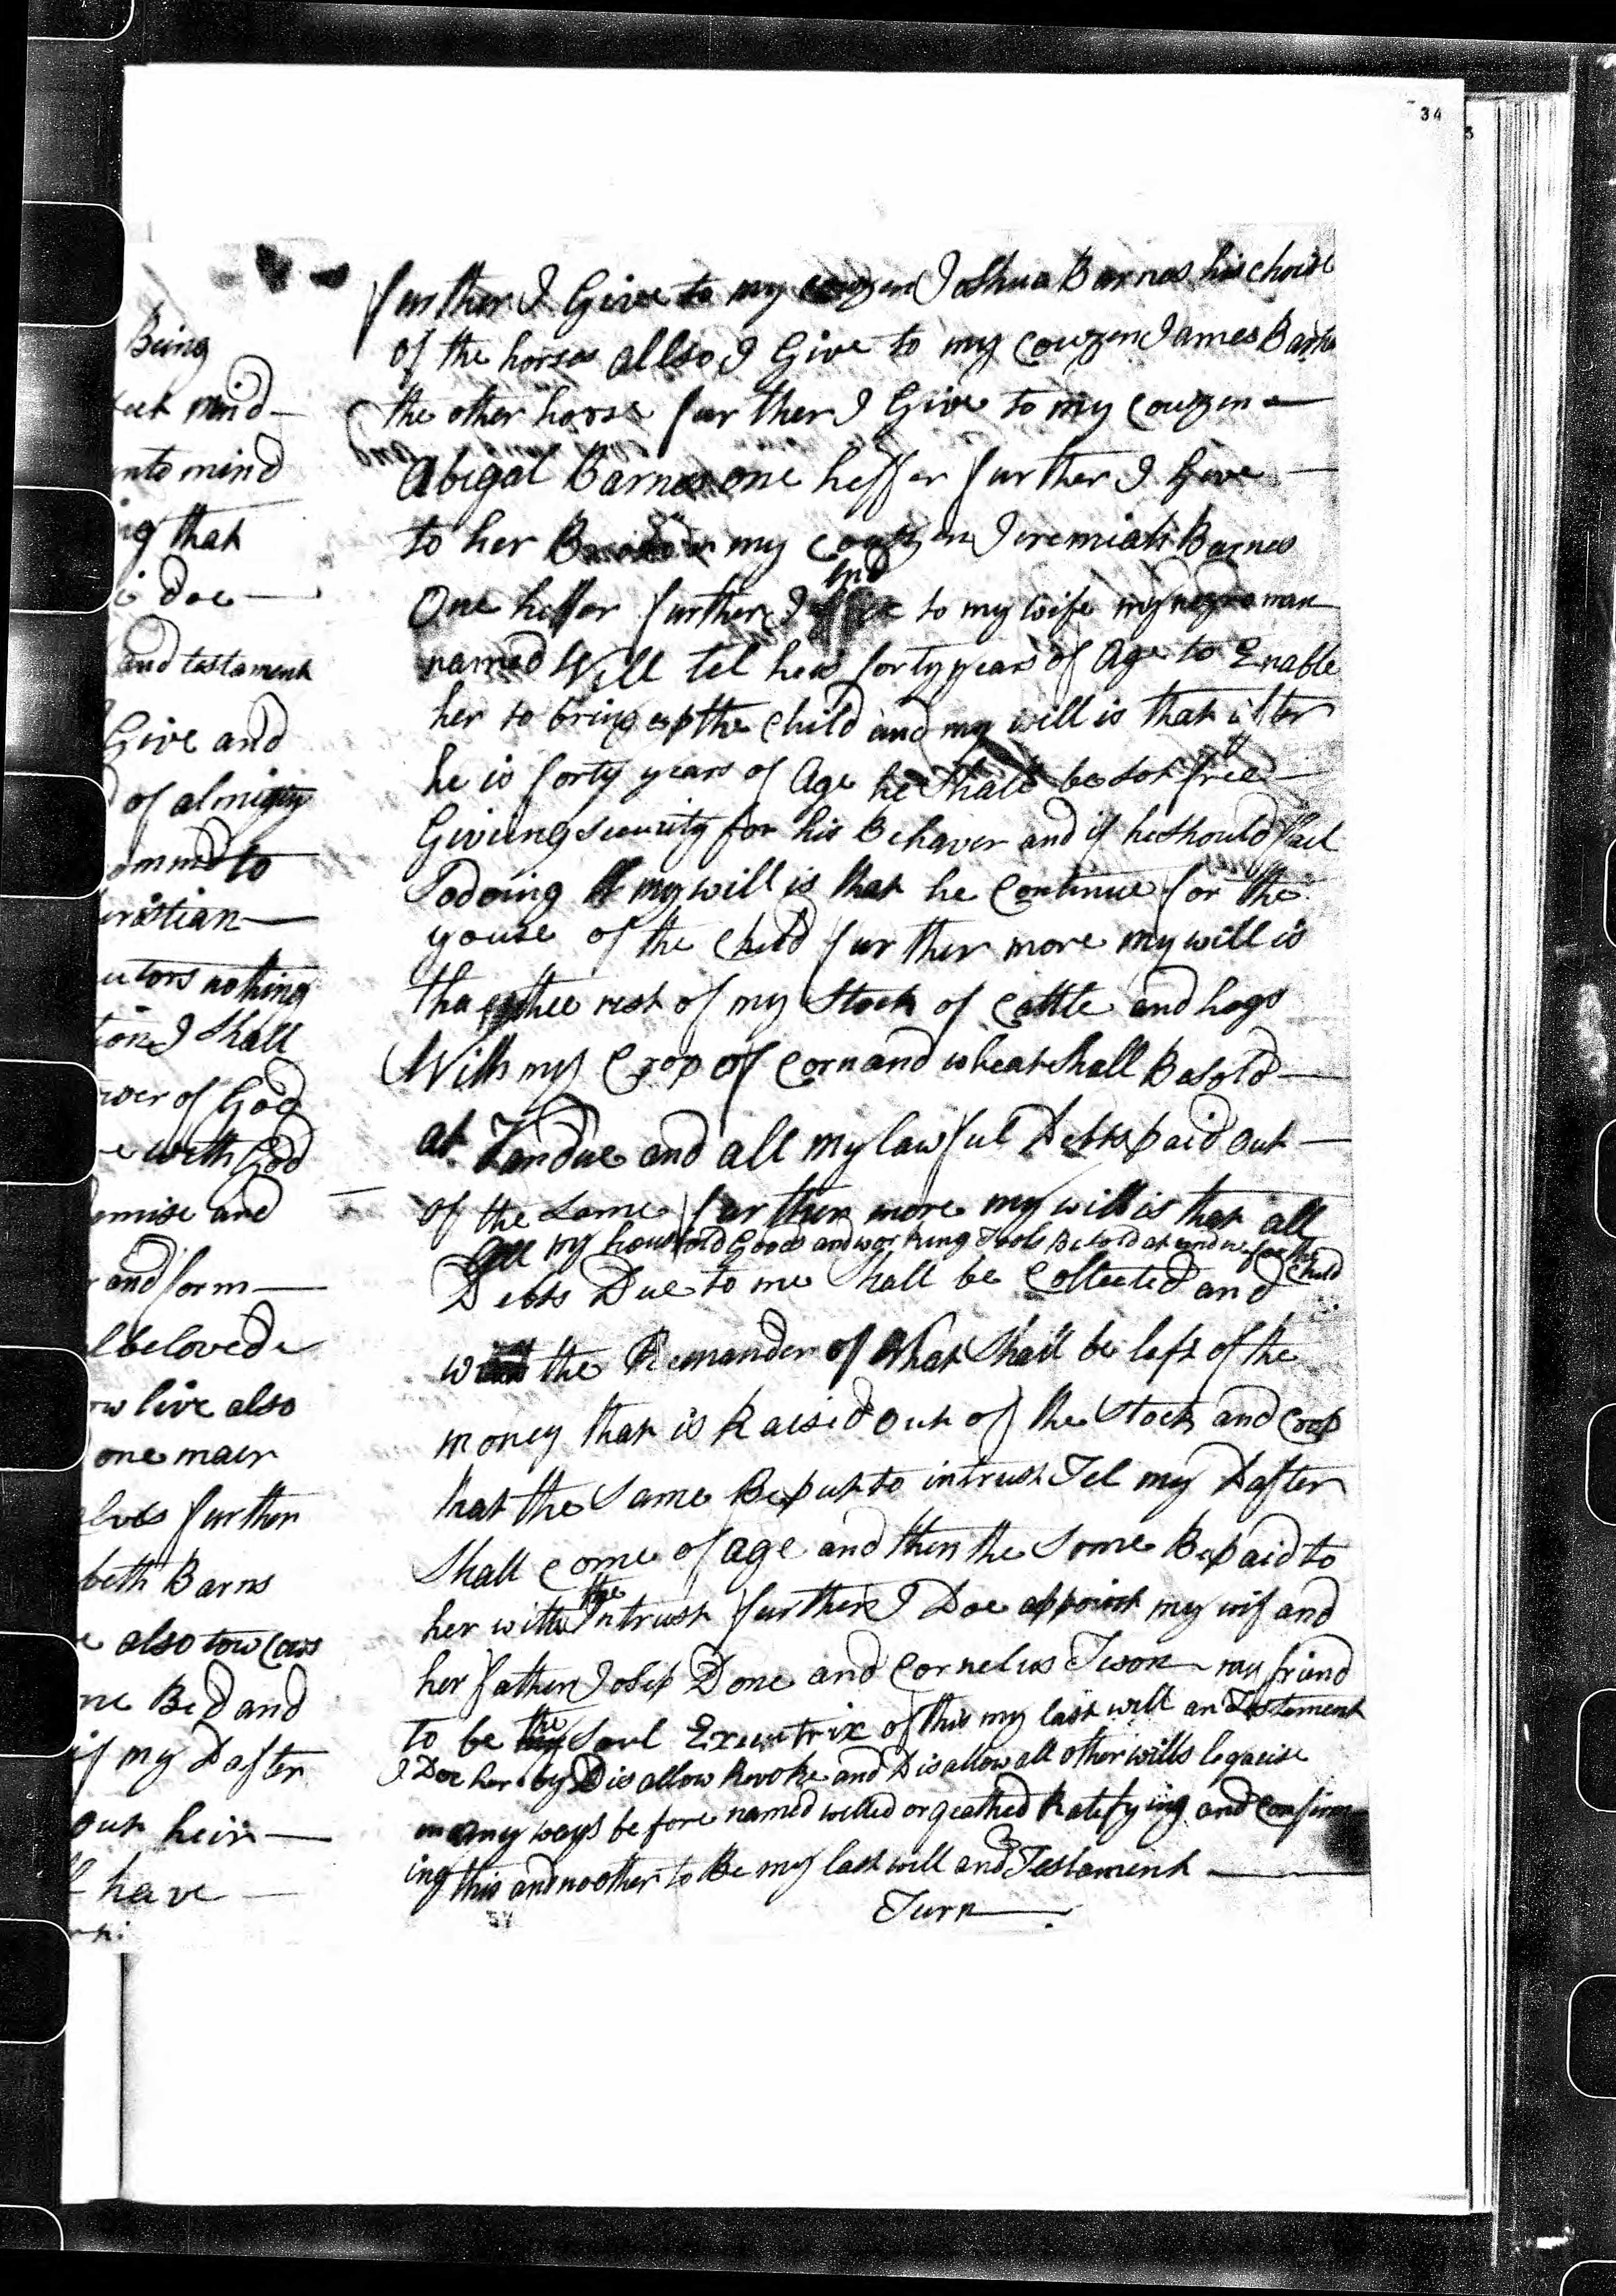 34
Being
mind
unto mind
that
doe
and testament
Give and
of almighty
to
nothing
I Shall
of God
with God
and
and form
beloved
live also
one
further
beth Barns
also tow Cows
Bed and
if my Dafter
out heir
have
further I Give to my couzen Joshua Barnes his choise
of the horses allso I Give to my Couzen James Barns
the other horse further I Give to my Couzen
Abigal Barnes one heffer further I Give
to her my couzen Jeremiah Barnes
One heffer further I lnd to my wife my negro man
named Will tel he is forty years of Age to Enable
her to bring up the Child and my will is that after
he is forty years of Age he Shall be Sot free
Giveing Security for his Behaver and if he Should fail
So doing my will is that he Continue for the
youse of the Child further more my will is
the rest of my Stock of Cattle and hogs
With my Crop of Corn and wheat Shall Be Sold
at Vandue and all my lawful Debts paid out
of the Same further more my will is that all
all my houshold Goods and working Tools Be Sold at vandue for the Child
Debts Due to me Shall be Collected and
the Remander of What Shall be left of the
money that is Raised out of the Stock and Crop
that the Same Be put to intrust Tel my Dafter
Shall come of age and then the Same Be paid to
her with the Intrust further I Doe appoint my wif and
her father Josep Done and Cornelius Tison my friend
to be the Soul Executrix of this my last will an Testement
I Doe hereby Disallow Revoke and Disallow all other wills legacise
in any ways before named willed or qeathed Ratifying and Confirm
ing this and no other to Be my last will and Testament
Turn